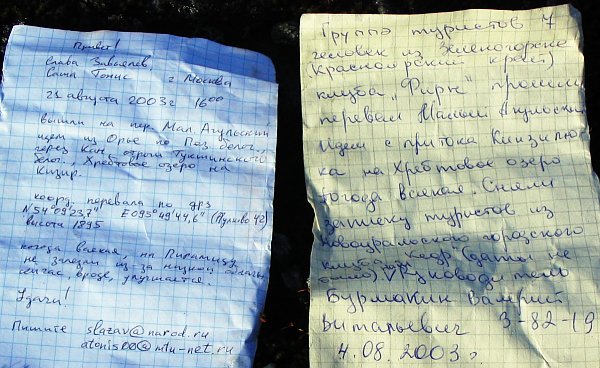 Привет!
Слава Завьялов,
Саша Тонис г. Москва
21 августа 2003 г 16⁰⁰
вышли на пер. Мал. Агульский
идем из Орье по Поз. белог.,
через Кан, озеро Тукшинского
белог., Хребтовое озеро на
Кизир.
коорд. перевала по GPS
N 54°09'23,7" E 095°49'44,6" (Пулково 42)
высота 1895
погода всякая, на Пирамиду
не залезли из-за низкой облачн.
сейчас, вроде, улучшается.
Удачи!
Пишите slazav@narod.ru
atonis00@mtu-net.ru
Группа туристов 7
человек из Зеленогорска
(Красноярский край)
клуба „Фирн" прошли
перевал Малый Агульский
Идем с притока Кинзилю-
ка на Хребтовое озеро
Погода всякая. Сняли
записку туристов из
Новоуральского городского
клуба Кедр (даты не
было) Руководитель
Бурмакин Валерий
Витальевич 3-82-19
4.08.2003 г.